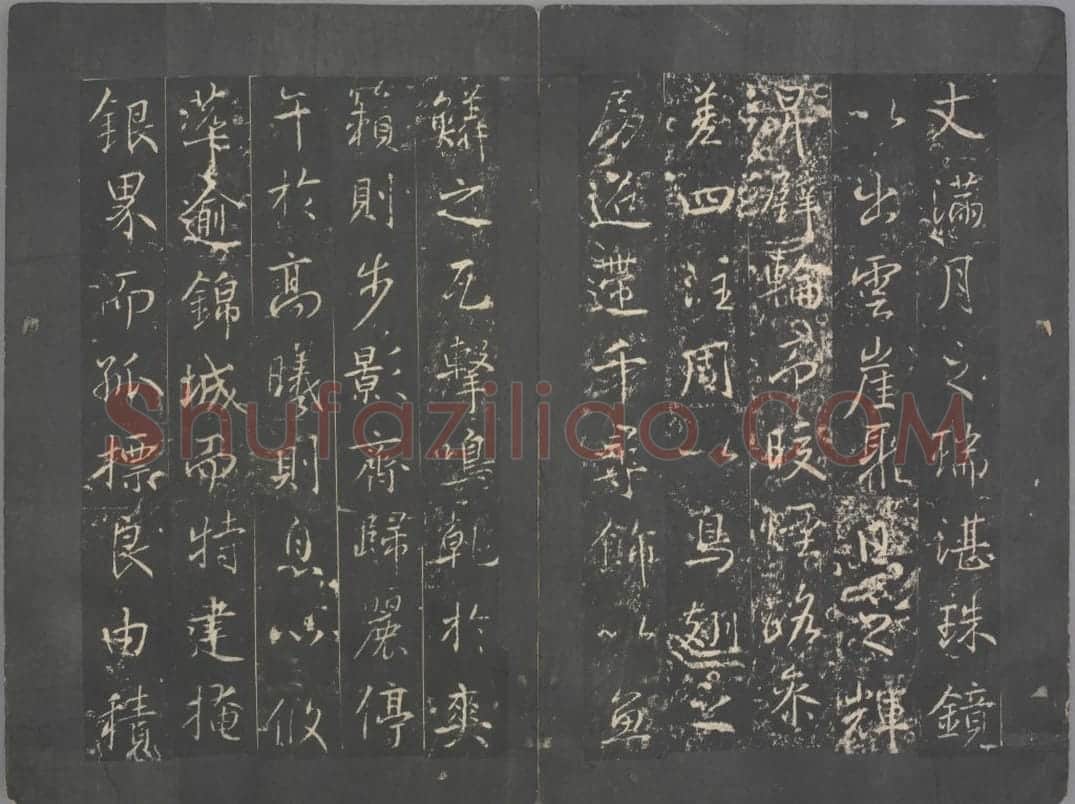 文滿月之瑞湛珠鏡
以出雲崖聚日之輝
昇璧輪而皎煙路參
差四注周以鳥翅之
房迤邐千尋飾以魚
鱗之瓦擊鳴乾於爽
籟則步影齊歸麗停
午於高曦則息心攸
萃逾錦城而特建掩
銀界而孤標良由積
Shufaziliao.COM